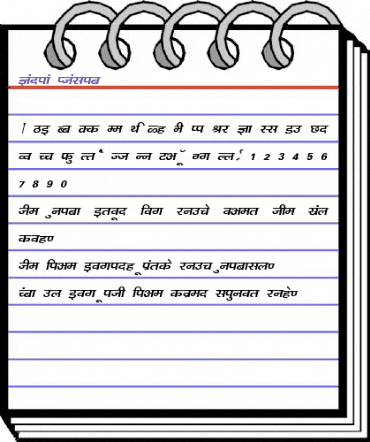 ज्ञंदपां प्जंसपब
। ठइ ब्ब क्क म्म र्थि ळ्ह भ्पी प्प श्रर ज्ञा स्स डउ छद
व्व च्च फु त्त ै ज्ज न्न ट अॅ ग्ग ल्ल ़ 1 2 3 4 5 6
7 8 9 0
जीम ुनपबा इतवूद विग रनउचे वअमत जीम स्रंल
कवहण
जीम पिअम इवगपदह ूप्रंतके रनउच ुनपबासलण
च्ंबा उल इवग ूपजी पिअम कव्रमद सपुनवत रनहेण